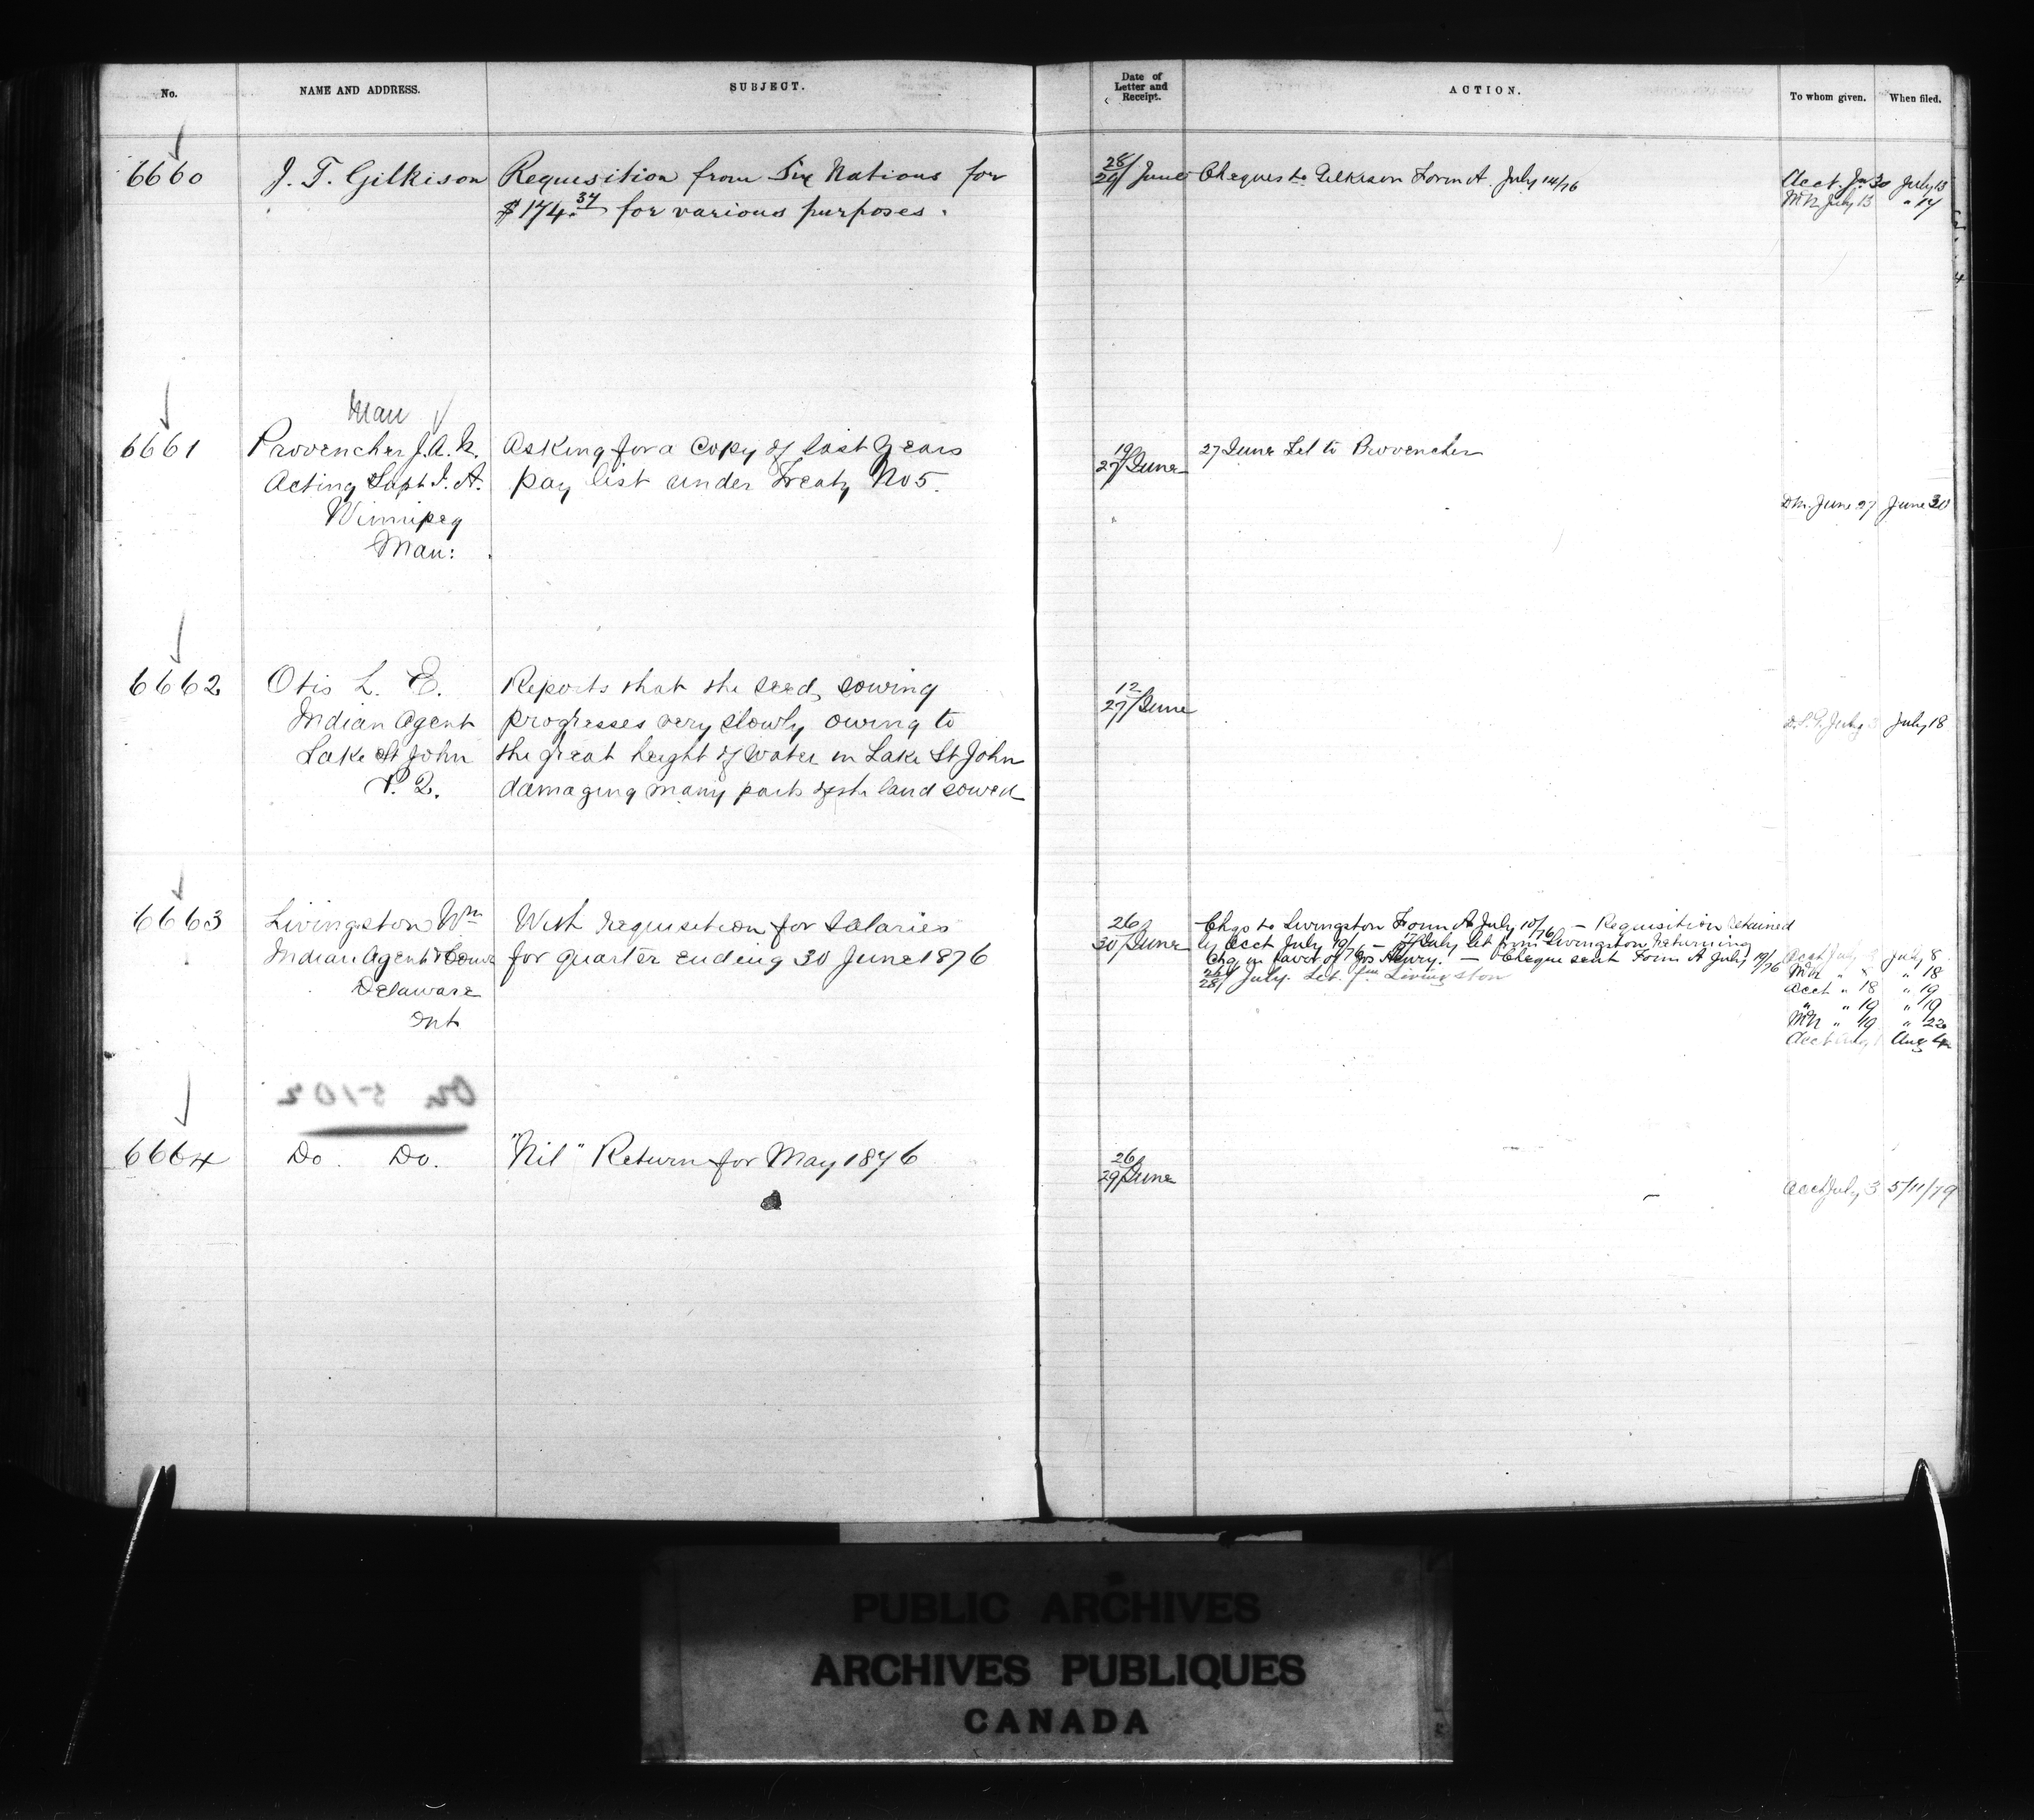 No.
NAME AND ADDRESS.
SUBJECT.
Date of
Letter and
Receipt.
ACTION.
To whom given.
When filed.
6660
J. T. Gilkison
Requisition from Six Nations for
$174.37 for various purposes.
28/29 June
Cheques to Gilkison Form A. July 14/76
Acct. Jn 30 July 13
July 13 " 17
Man
6661
Provencher J. A. N.
Acting Supt I. A.
Winnipeg
Man:
Asking for a Copy of last Years
pay list under Treaty No 5.
19/27 June
27 June Let to Provencher
June 27 June 30
6662
Otis L. E.
Indian Agent
Lake St John
P. Q.
Reports that the seed sowing
progresses very slowly owing to
the great height of water in Lake St John
damaging many parts of the land sowed
12/27 June
July July 18
6663
Livingston Wm
Indian Agent &
Delaware
Ont
With requisition for salaries
for quarter ending 30 June 1876
26/30 June
Chqs to Livingston Form A July 10/76 — Requisition retained
by Acct July 19/76 — July Let from Livingston returning
Chq in favor of Henry. — Cheque sent Form A July 19/76
28 July. Let. fm Livingston
Acct July July 8
" 18
Acct " 18 " 19
" " 19 " 19
" 19 " 22
Acct Aug Aug 4
On 5102
6664
Do. Do.
"Nil" Return for May 1876
26/29 June
Acct July 3 5/11/79
PUBLIC ARCHIVES
ARCHIVES PUBLIQUES
CANADA